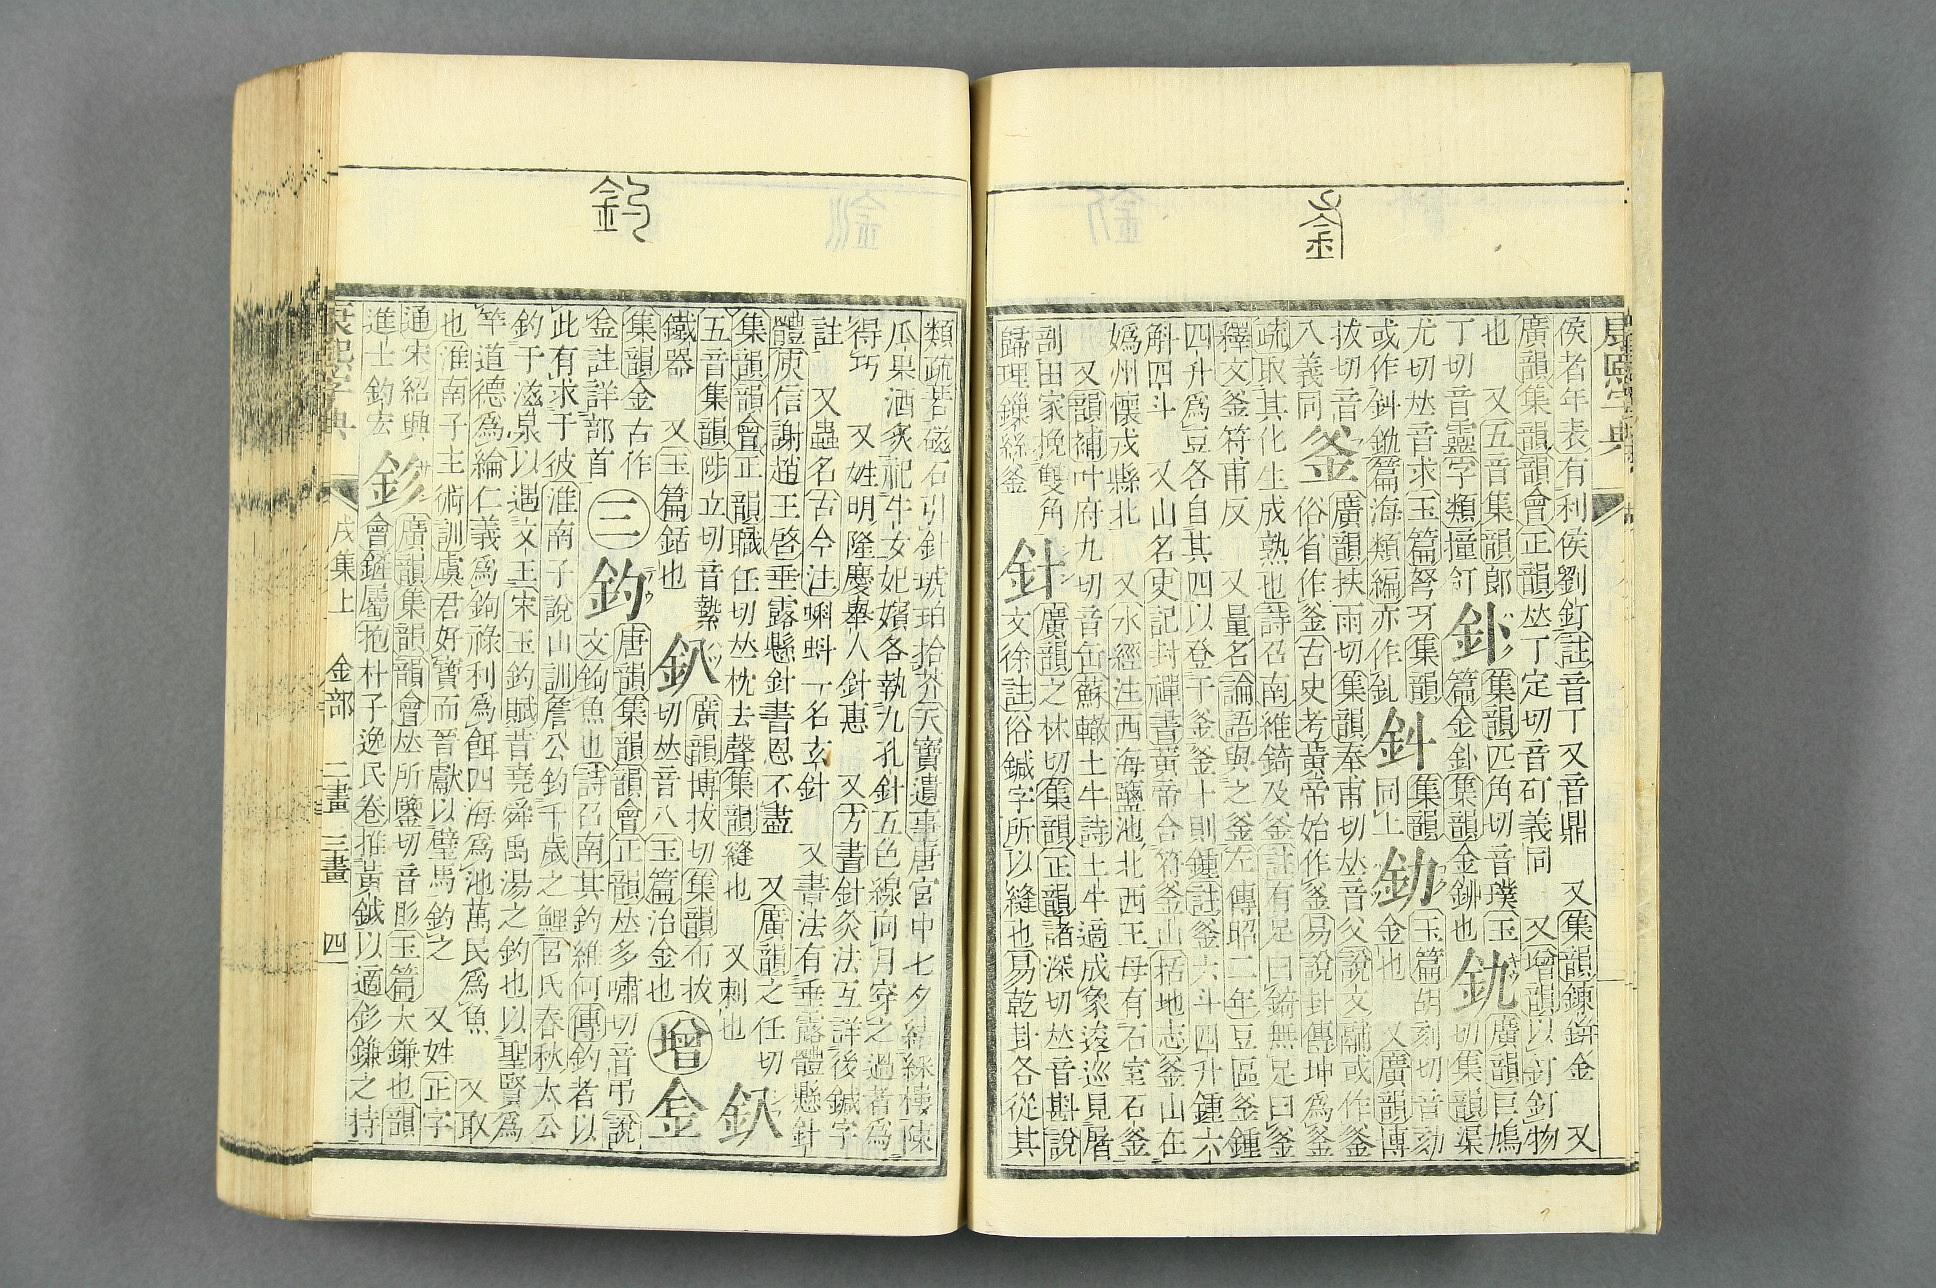 釜
康熙字典
侯者年表有利侯劉釘註音丁又音鼎 又集韻鍊鉼金 又
廣韻集韻韻會正韻𠀤丁定切音矴義同 又增韻以釘釘物
也 又五音集韻郎
丁切音靈字類撞釘
釙
集韻匹角切音璞玉
篇金釙集韻金鉚也
釚
廣韻巨鳩
切集韻渠
尤切𠀤音求玉篇弩牙集韻
或作㪺銶篇海類編亦作釓
釒斗
集韻
同上
釛
玉篇胡刻切音劾
金也 又廣韻博
拔切音八
義同
釜
廣韻扶雨切集韻奉甫切𠀤音父說文鬴或作釜
俗省作釜古史考黃帝始作釜易說卦傳坤爲釜
疏取其化生成熟也詩召南維錡及釜註有足曰錡無足曰釜
釋文釜符甫反 又量名論語與之釜左傳昭二年豆區釜鍾
四升爲豆各自其四以登于釜釜十則鍾註釜六斗四升鍾六
斛四斗 又山名史記封禪書黃帝合符釜山括地志釜山在
嬀州懷戎縣北 又水經注西海鹽池北西王母有石室石釜
又韻補叶府九切音缶蘇轍土牛詩土牛適成象逡巡見屠
剖田家挽雙角
歸理繰絲釜
針
廣韻之林切集韻正韻諸深切𠀤音斟說
文徐註俗鍼字所以縫也易乾卦各從其
釣
類疏若磁石引針琥珀拾芥天寶遺事唐宮中七夕結綵樓陳
瓜果酒炙祀牛女妃嬪各執九孔針五色線向月穿之過者爲
得巧 又姓明隆慶舉人針惠 又方書針灸法互詳後鍼字
註 又蟲名古今注蝌蚪一名玄針 又書法有垂露體懸針
體庾信謝趙王啓垂露懸針書恩不盡 又廣韻之任切
集韻韻會正韻職任切𠀤枕去聲集韻縫也 又刺也
釞
五音集韻陟立切音縶
鐵器 又玉篇銛也
釟
廣韻博拔切集韻布拔
切𠀤音八玉篇冶金也
增
金
集韻金古作
金註詳部首
三
釣
唐韻集韻韻會正韻𠀤多嘯切音弔說
文鉤魚也詩召南其釣維何傳釣者以
此有求于彼淮南子說山訓詹公釣千歲之鯉呂氏春秋太公
釣于滋泉以遇文王宋玉釣賦昔堯舜禹湯之釣也以聖賢爲
竿道德爲綸仁義爲鉤祿利爲餌四海爲池萬民爲魚 又取
也淮南子主術訓虞君好寶而晉獻以璧馬釣之 又姓正字
通宋紹興
進士釣宏
釤
廣韻集韻韻會𠀤所鑒切音彡玉篇大鎌也韻
會鏟屬抱朴子逸民卷推黃鉞以適釤鎌之持
康熙字典 戌集上 金部 二畫 三畫 四